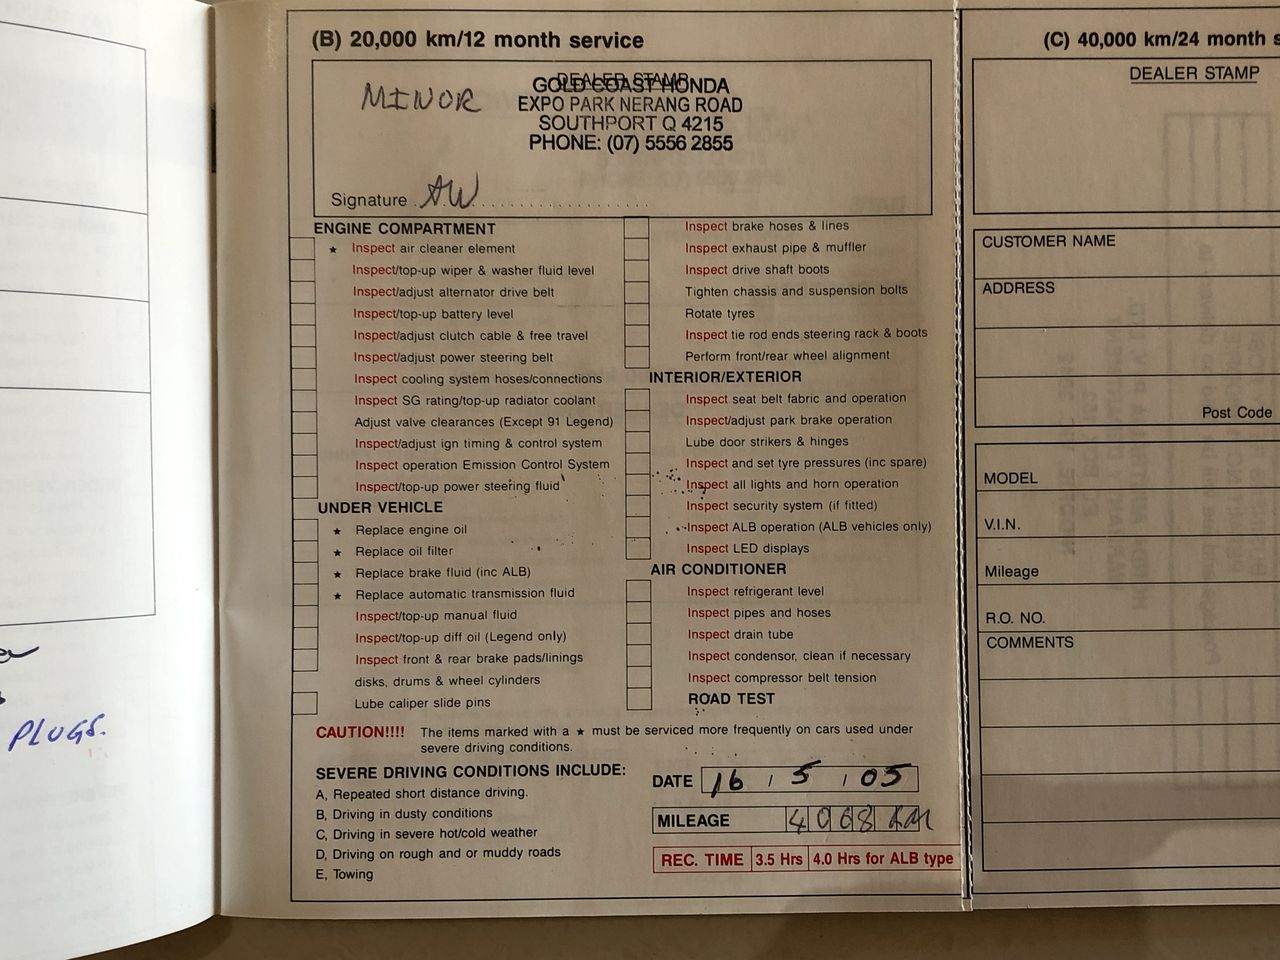 PLUGS.
(B) 20,000 km/12 month service
DEALER STAMP
MINOR
GOLD COAST HONDA
EXPO PARK NERANG ROAD
SOUTHPORT Q 4215
PHONE: (07) 5556 2855
Signature AW
ENGINE COMPARTMENT
★ Inspect air cleaner element
Inspect/top-up wiper & washer fluid level
Inspect/adjust alternator drive belt
Inspect/top-up battery level
Inspect/adjust clutch cable & free travel
Inspect/adjust power steering belt
Inspect cooling system hoses/connections
Inspect SG rating/top-up radiator coolant
Adjust valve clearances (Except 91 Legend)
Inspect/adjust ign timing & control system
Inspect operation Emission Control System
Inspect/top-up power steering fluid
UNDER VEHICLE
★ Replace engine oil
★ Replace oil filter
★ Replace brake fluid (inc ALB)
★ Replace automatic transmission fluid
Inspect/top-up manual fluid
Inspect/top-up diff oil (Legend only)
Inspect front & rear brake pads/linings
disks, drums & wheel cylinders
Lube caliper slide pins
Inspect brake hoses & lines
Inspect exhaust pipe & muffler
Inspect drive shaft boots
Tighten chassis and suspension bolts
Rotate tyres
Inspect tie rod ends steering rack & boots
Perform front/rear wheel alignment
INTERIOR/EXTERIOR
Inspect seat belt fabric and operation
Inspect/adjust park brake operation
Lube door strikers & hinges
Inspect and set tyre pressures (inc spare)
Inspect all lights and horn operation
Inspect security system (if fitted)
Inspect ALB operation (ALB vehicles only)
Inspect LED displays
AIR CONDITIONER
Inspect refrigerant level
Inspect pipes and hoses
Inspect drain tube
Inspect condensor, clean if necessary
Inspect compressor belt tension
ROAD TEST
CAUTION!!!! The items marked with a ★ must be serviced more frequently on cars used under
severe driving conditions.
SEVERE DRIVING CONDITIONS INCLUDE:
A, Repeated short distance driving.
B, Driving in dusty conditions
C, Driving in severe hot/cold weather
D, Driving on rough and or muddy roads
E, Towing
DATE 16 / 5 / 05
MILEAGE 4068 KM
REC. TIME 3.5 Hrs 4.0 Hrs for ALB type
(C) 40,000 km/24 month s
DEALER STAMP
CUSTOMER NAME
ADDRESS
Post Code
MODEL
V.I.N.
Mileage
R.O. NO.
COMMENTS